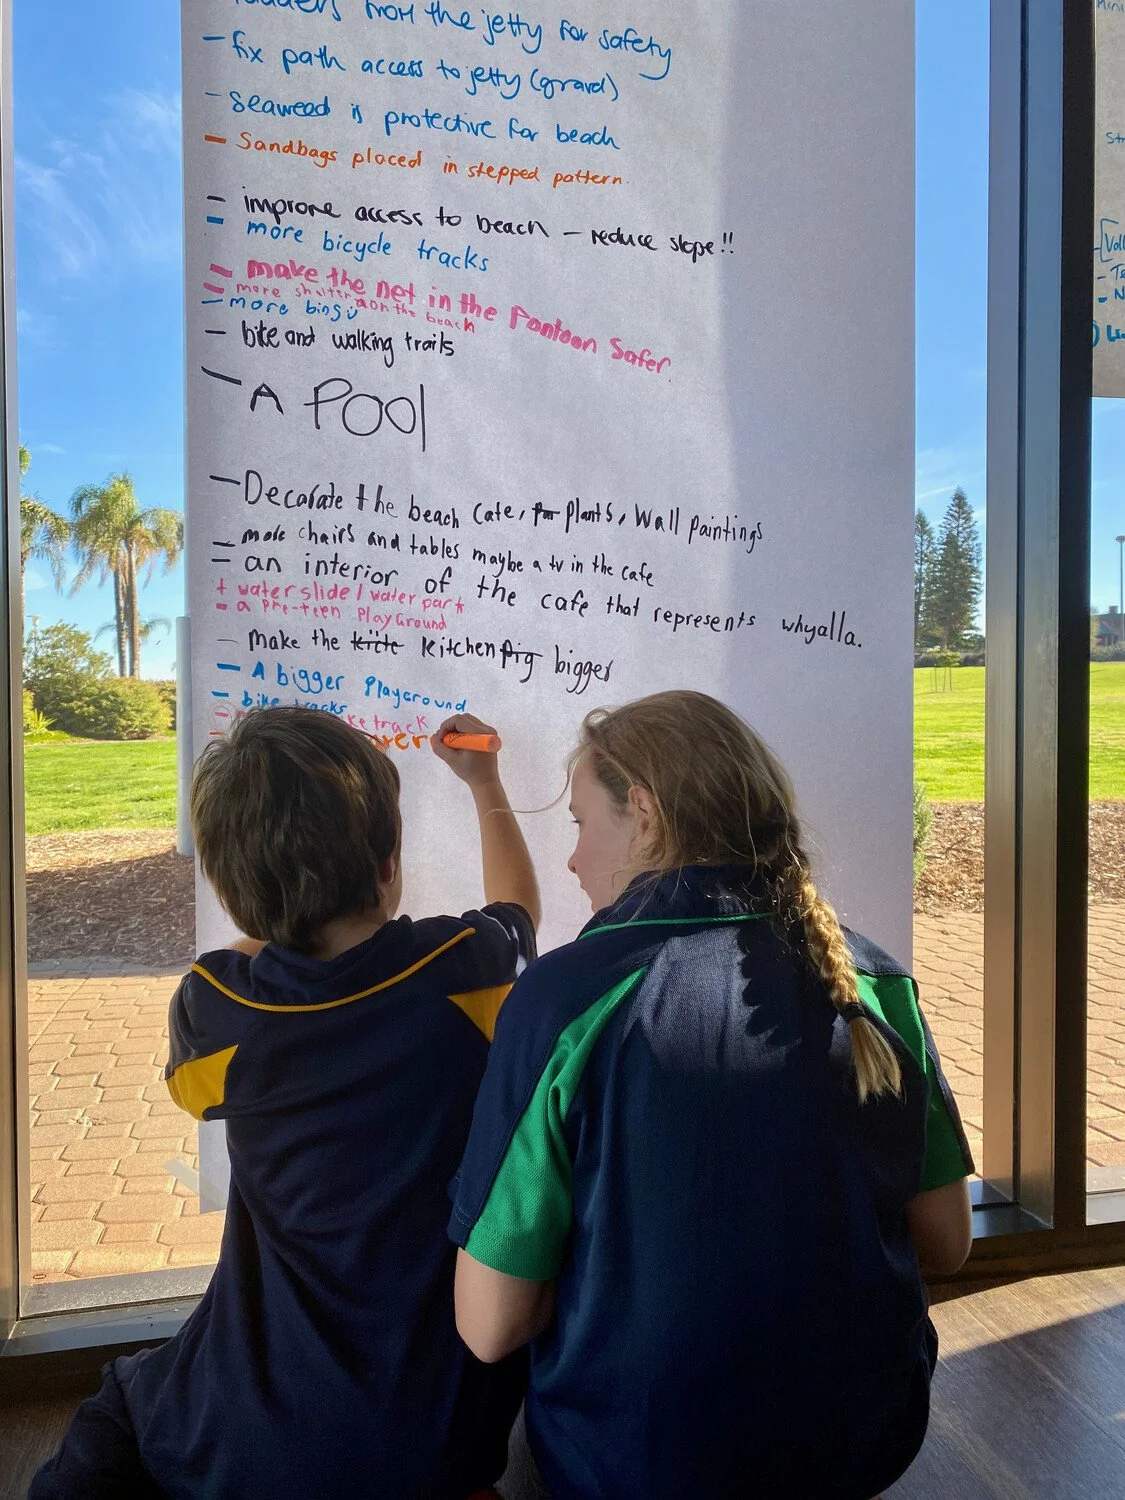 ladders from the jetty for safety
- fix path access to jetty (gravel)
- seaweed is protective for beach
- Sandbags placed in stepped pattern.
- improve access to beach - reduce slope!!
- more bicycle tracks
- make the net in the Pontoon Safer.
- more shelters on the beach
- more bins
- bike and walking trails
- A POOl
- Decorate the beach cafe, for plants, Wall paintings
- more chairs and tables maybe a tv in the cafe
- an interior of the cafe that represents whyalla.
+ water slide / water park
- a pre-teen PlayGround
- Make the kitte kitchen fig bigger
- A bigger Playground
- bike tracks
- bike track